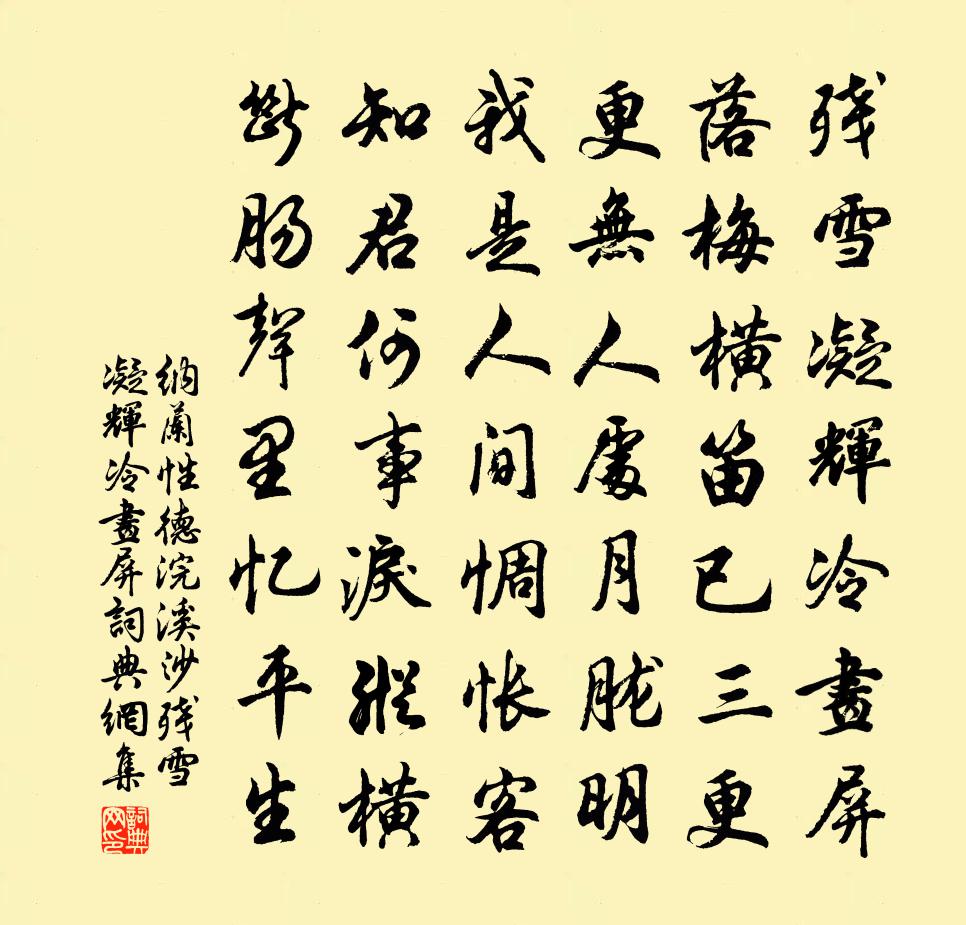 残雪凝輝冷畫屏
落梅橫笛已三更
更無人處月胧明
我是人间惆怅客
知君何事淚縱橫
斷肠聲里忆平生
納蘭性德浣溪沙残雪
凝輝冷畫屏詞典網集
詞典網印